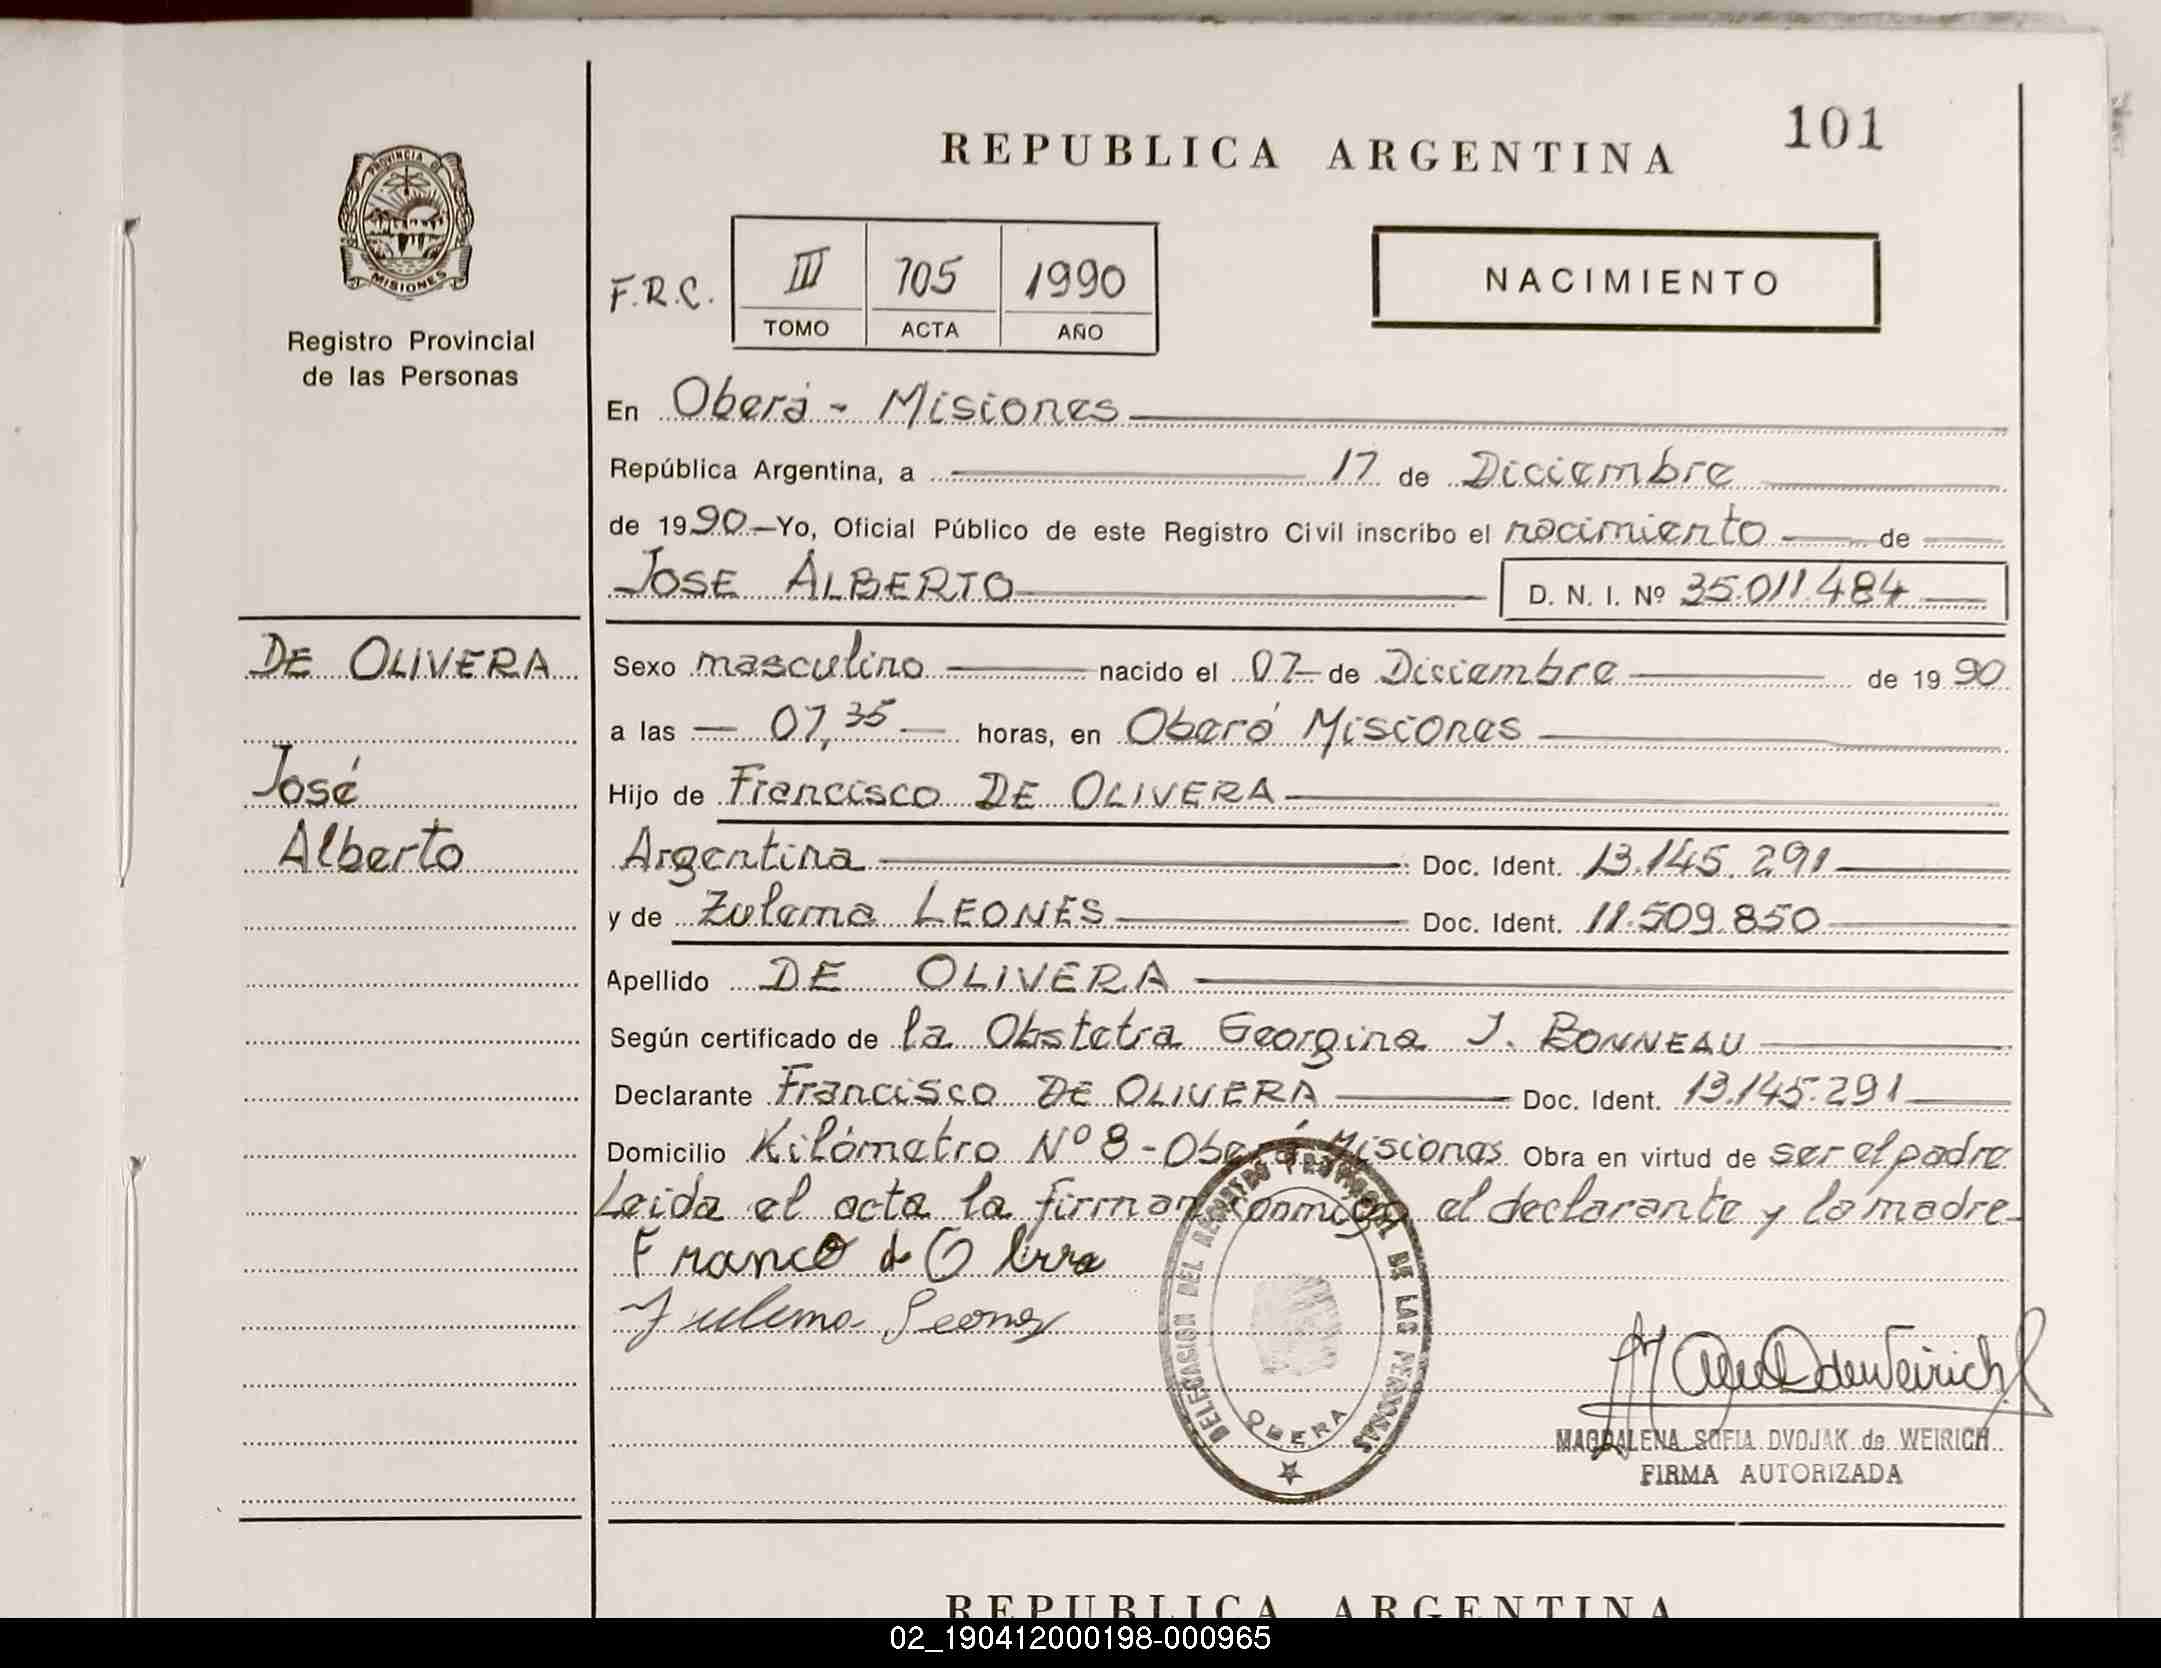 101
REPUBLICA ARGENTINA
PROVINCIA DE
MISIONES
Registro Provincial
de las Personas
F.R.C. III 705 1990
TOMO ACTA AÑO
NACIMIENTO
En Oberá - Misiones
República Argentina, a 17 de Diciembre
de 1990 Yo, Oficial Público de este Registro Civil inscribo el nacimiento de
JOSE ALBERTO D. N. I. Nº 35.011.484
DE OLIVERA
José
Alberto
Sexo masculino nacido el 07 de Diciembre de 1990
a las 07,35 horas, en Oberá Misiones
Hijo de Francisco DE OLIVERA
Argentina Doc. Ident. 13.145.291
y de Zulema LEONES Doc. Ident. 11.509.850
Apellido DE OLIVERA
Según certificado de la Obstetra Georgina J. BONNEAU
Declarante Francisco DE OLIVERA Doc. Ident. 13.145.291
Domicilio Kilómetro Nº 8 - Oberá Misiones Obra en virtud de ser el padre
Leida el acta la firman conmigo el declarante y la madre
Zulema Leones
DELEGASION DEL REGISTRO PROVINCIAL DE LAS PERSONAS
OBERA
MAGDALENA SOFIA DVOJAK de WEIRICH
FIRMA AUTORIZADA
REPUBLICA ARGENTINA
02_190412000198-000965